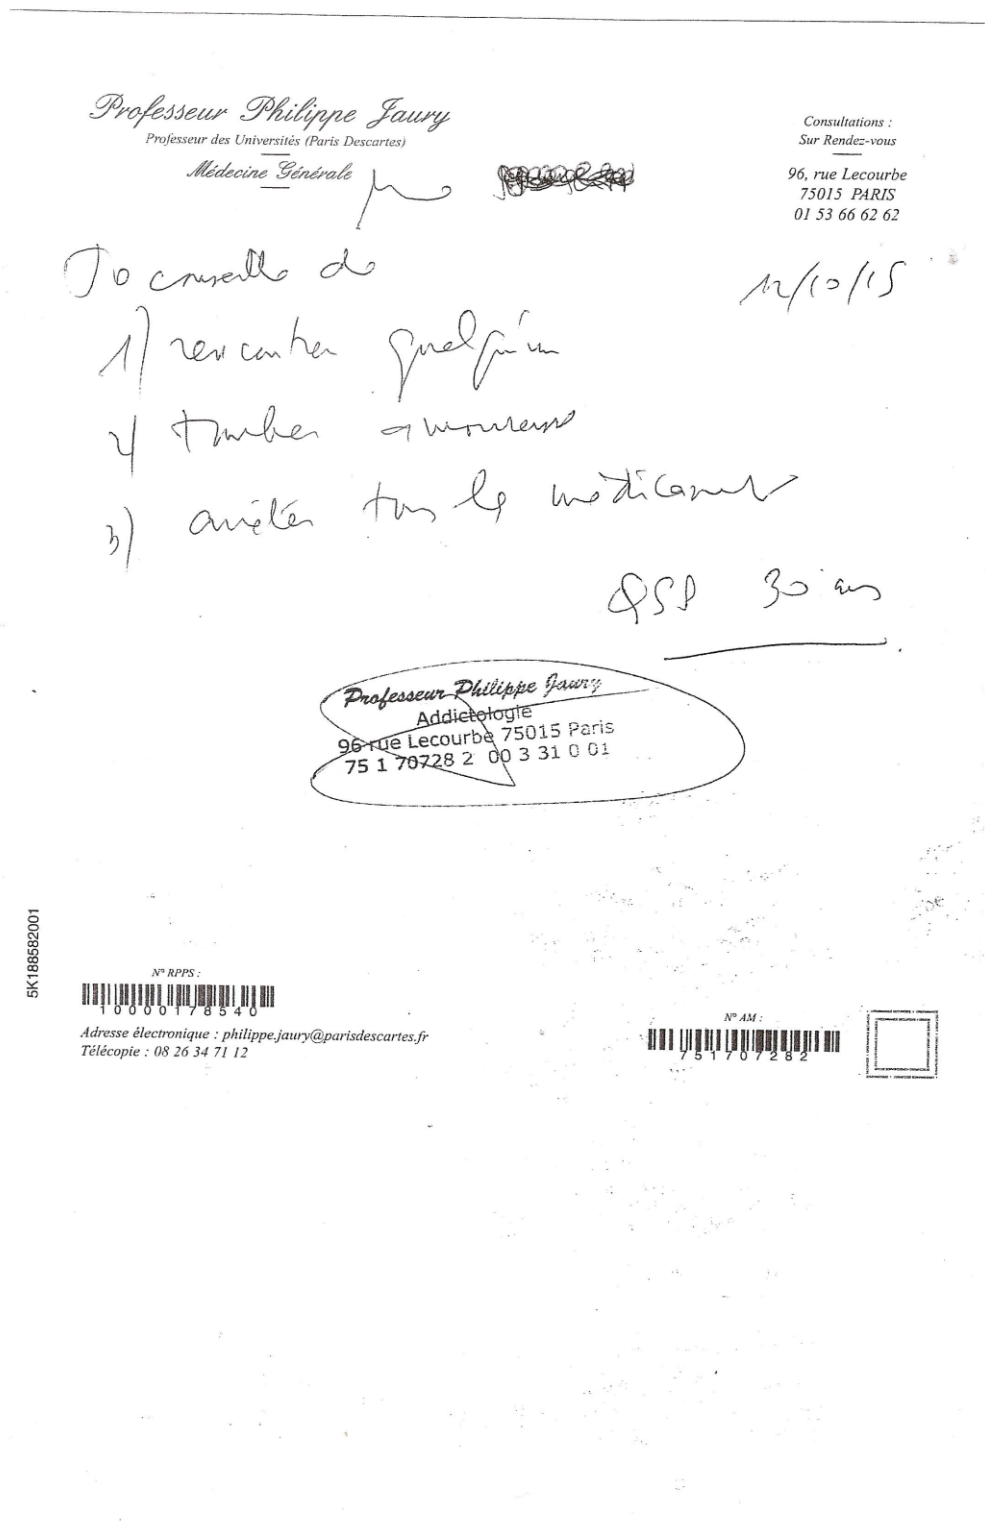 Professeur Philippe Jaury
Professeur des Universités (Paris Descartes)
Médecine Générale
Consultations :
Sur Rendez-vous
96, rue Lecourbe
75015 PARIS
01 53 66 62 62
12/10/15
Je conseille de
1) rencontrer quelqu'un
2) tomber amoureuse
3) arrêter tous les médicaments
QSP 30 ans
Professeur Philippe Jaury
Addictologie
96 rue Lecourbe 75015 Paris
75 1 70728 2 00 3 31 0 01
5K188582001
N° RPPS :
10000178540
Adresse électronique : philippe.jaury@parisdescartes.fr
Télécopie : 08 26 34 71 12
N° AM :
751707282